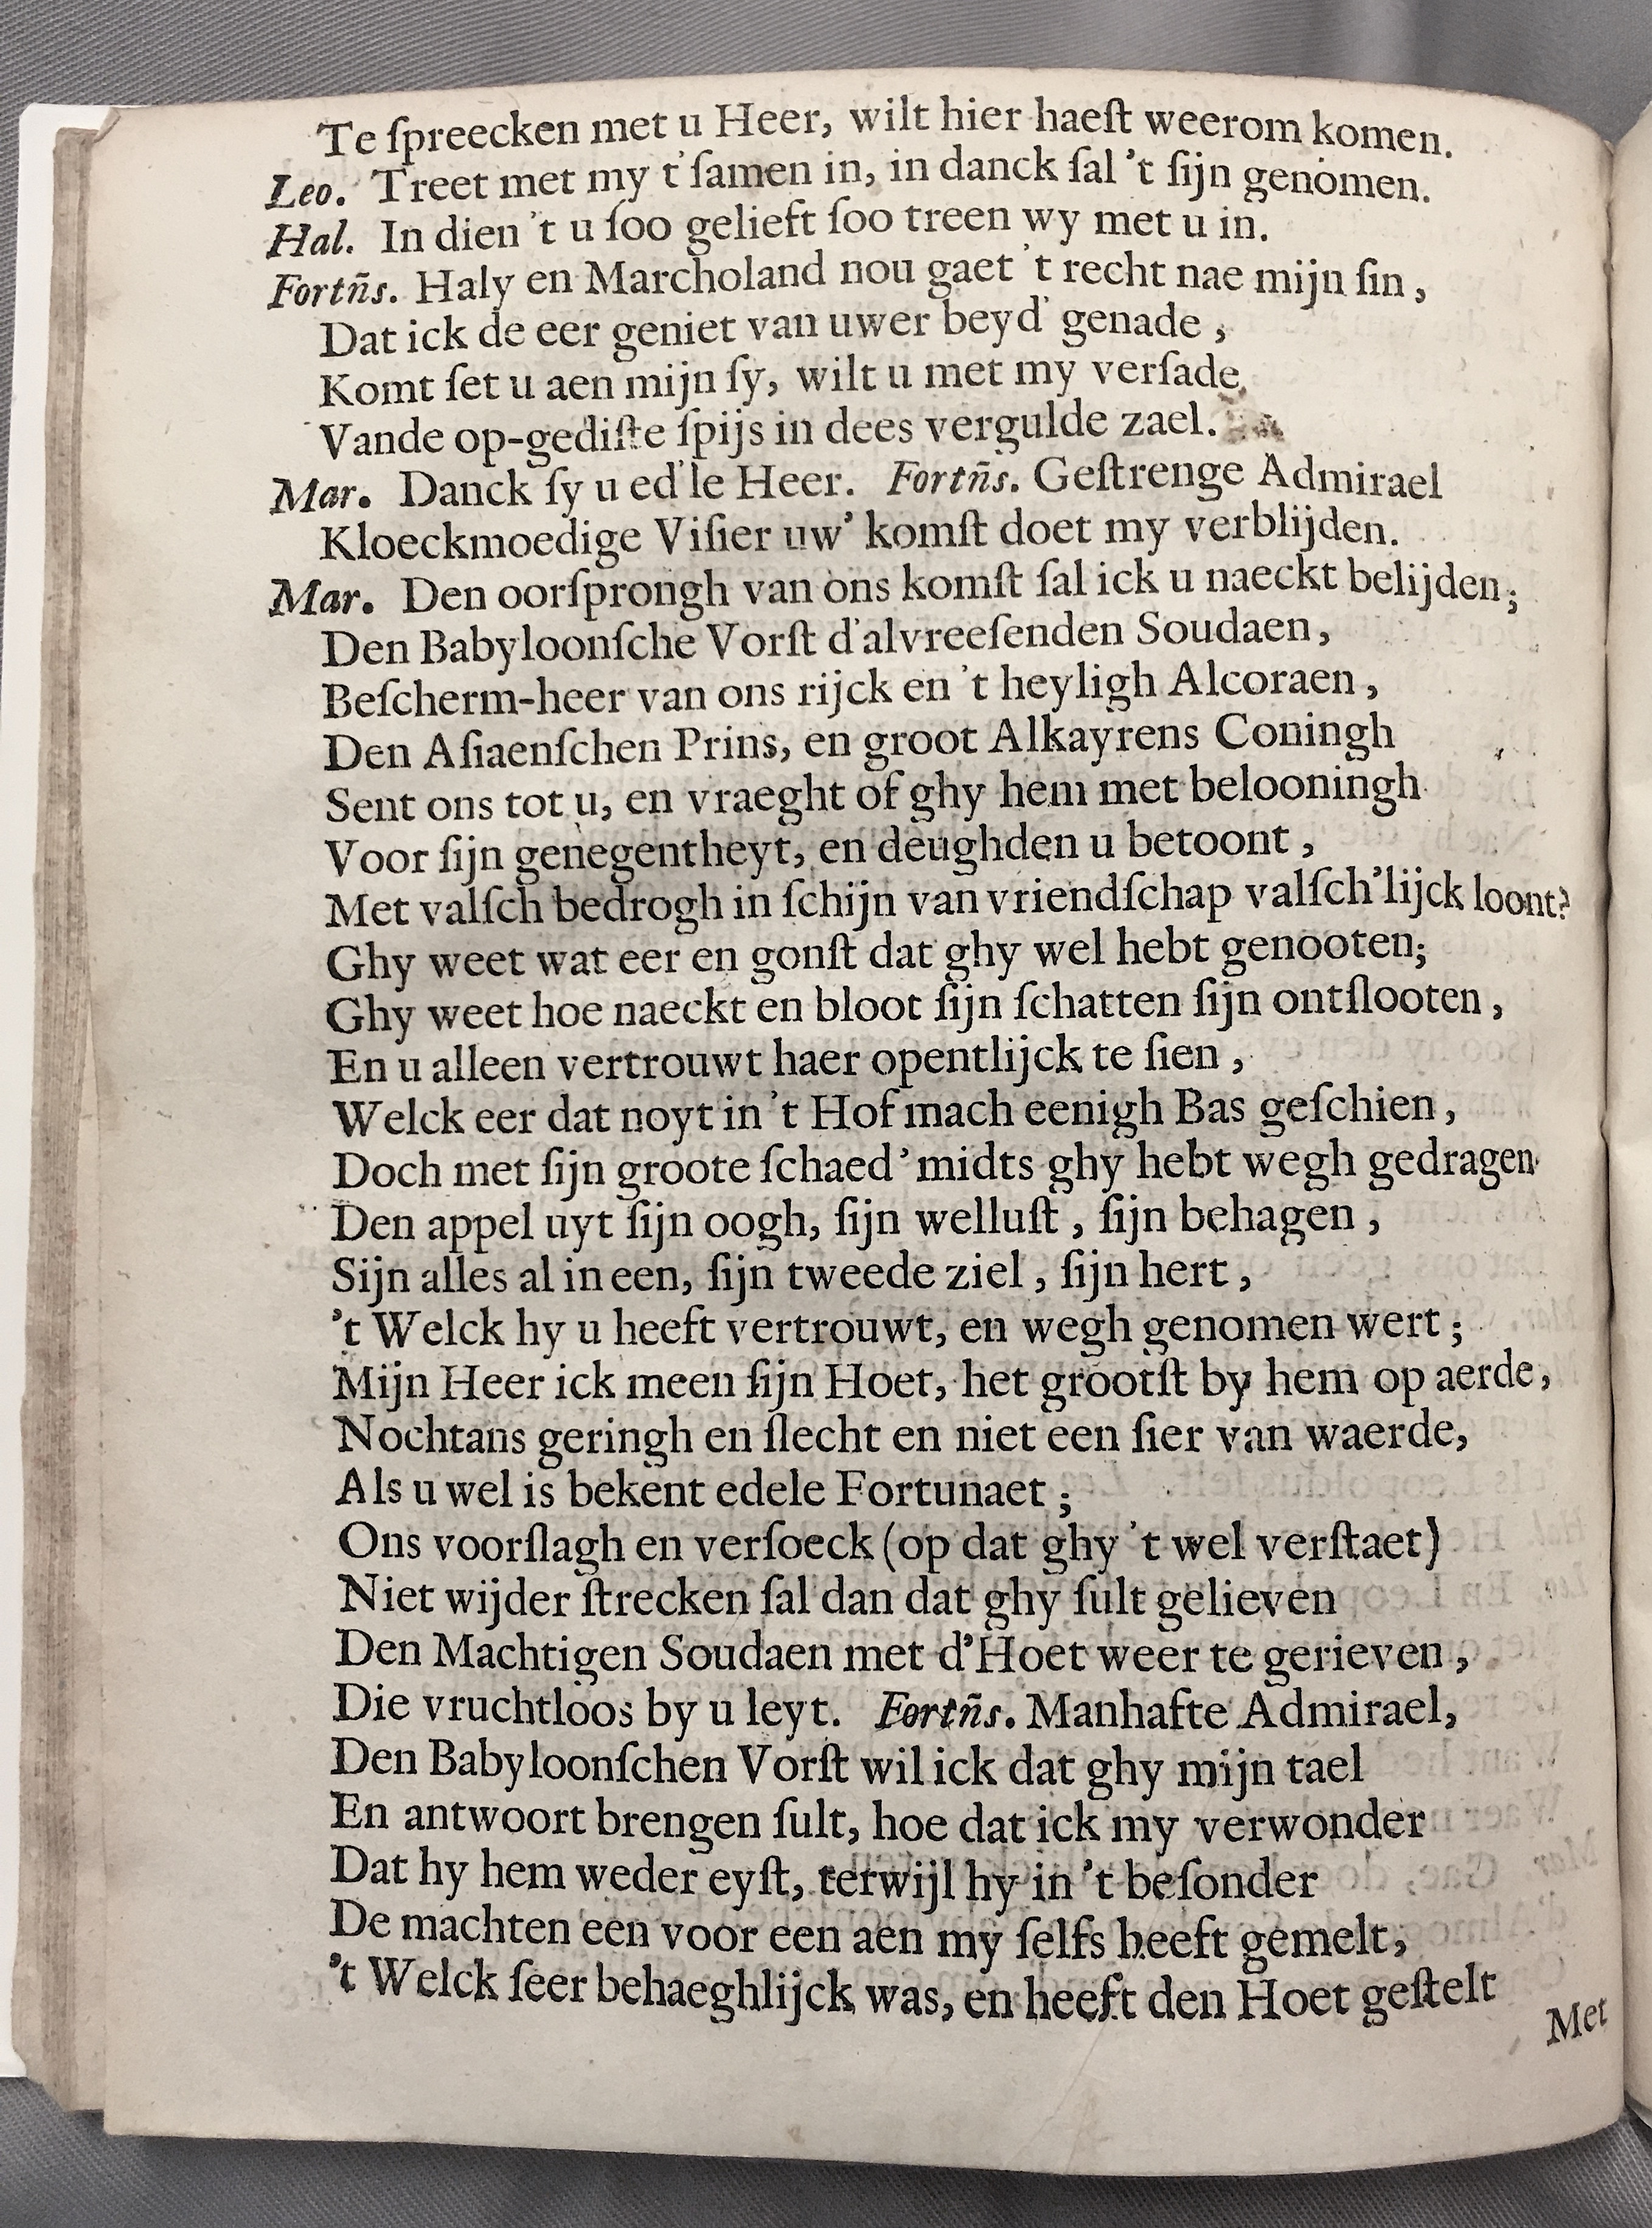 Te ſpreecken met u Heer, wilt hier haeſt weerom komen.
Leo. Treet met my t'ſamen in, in danck ſal 't ſijn genomen.
Hal. In dien 't u ſoo gelieft ſoo treen wy met u in.
Fortñs. Haly en Marcholand nou gaet 't recht nae mijn ſin,
Dat ick de eer geniet van uwer beyd' genade,
Komt ſet u aen mijn ſy, wilt u met my verſade,
Vande op-gediſte ſpijs in dees vergulde zael.
Mar. Danck ſy u ed'le Heer. Fortñs. Geſtrenge Admirael
Kloeckmoedige Viſier uw' komſt doet my verblijden.
Mar. Den oorſprongh van ons komſt ſal ick u naeckt belijden;
Den Babyloonſche Vorſt d'alvreeſenden Soudaen,
Beſcherm-heer van ons rijck en 't heyligh Alcoraen,
Den Aſiaenſchen Prins, en groot Alkayrens Coningh
Sent ons tot u, en vraeght of ghy hem met belooningh
Voor ſijn genegentheyt, en deughden u betoont,
Met valſch bedrogh in ſchijn van vriendſchap valſch'lijck loont?
Ghy weet wat eer en gonſt dat ghy wel hebt genooten;
Ghy weet hoe naeckt en bloot ſijn ſchatten ſijn ontſlooten,
En u alleen vertrouwt haer opentlijck te ſien,
Welck eer dat noyt in 't Hof mach eenigh Bas geſchien,
Doch met ſijn groote ſchaed' midts ghy hebt wegh gedragen
Den appel uyt ſijn oogh, ſijn welluſt, ſijn behagen,
Sijn alles al in een, ſijn tweede ziel, ſijn hert,
't Welck hy u heeft vertrouwt, en wegh genomen wert;
Mijn Heer ick meen ſijn Hoet, het grootſt by hem op aerde,
Nochtans geringh en ſlecht en niet een ſier van waerde,
Als u wel is bekent edele Fortunaet;
Ons voorſlagh en verſoeck (op dat ghy 't wel verſtaet)
Niet wijder ſtrecken ſal dan dat ghy ſult gelieven
Den Machtigen Soudaen met d'Hoet weer te gerieven,
Die vruchtloos by u leyt. Fortñs. Manhafte Admirael,
Den Babyloonſchen Vorſt wil ick dat ghy mijn tael
En antwoort brengen ſult, hoe dat ick my verwonder
Dat hy hem weder eyſt, terwijl hy in 't beſonder
De machten een voor een aen my ſelfs heeft gemelt,
't Welck ſeer behaeghlijck was, en heeft den Hoet geſtelt
Met